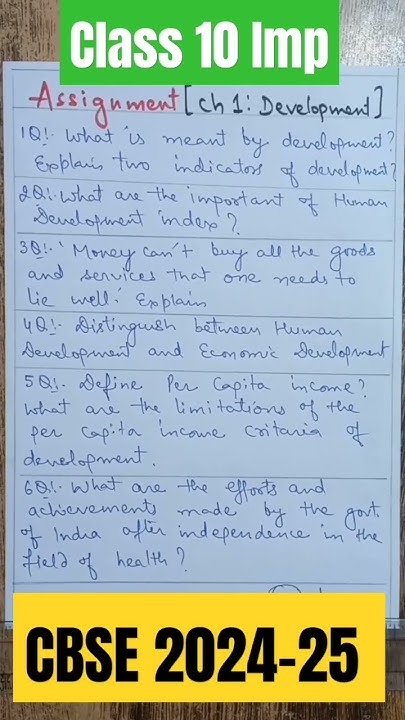 Class 10 Imp
Assignment [Ch 1: Development]
1Q!. What is meant by development?
Explain two indicators of development?
2Q!. What are the important of Human
Development index?
3Q!. 'Money can't buy all the goods
and services that one needs to
lie well.' Explain
4Q!. Distinguish between Human
Development and Economic Development
5Q!. Define Per Capita income?
What are the limitations of the
per capita income criteria of
development.
6Q!. What are the efforts and
achievements made by the govt.
of India after independence in the
field of health?
CBSE 2024-25